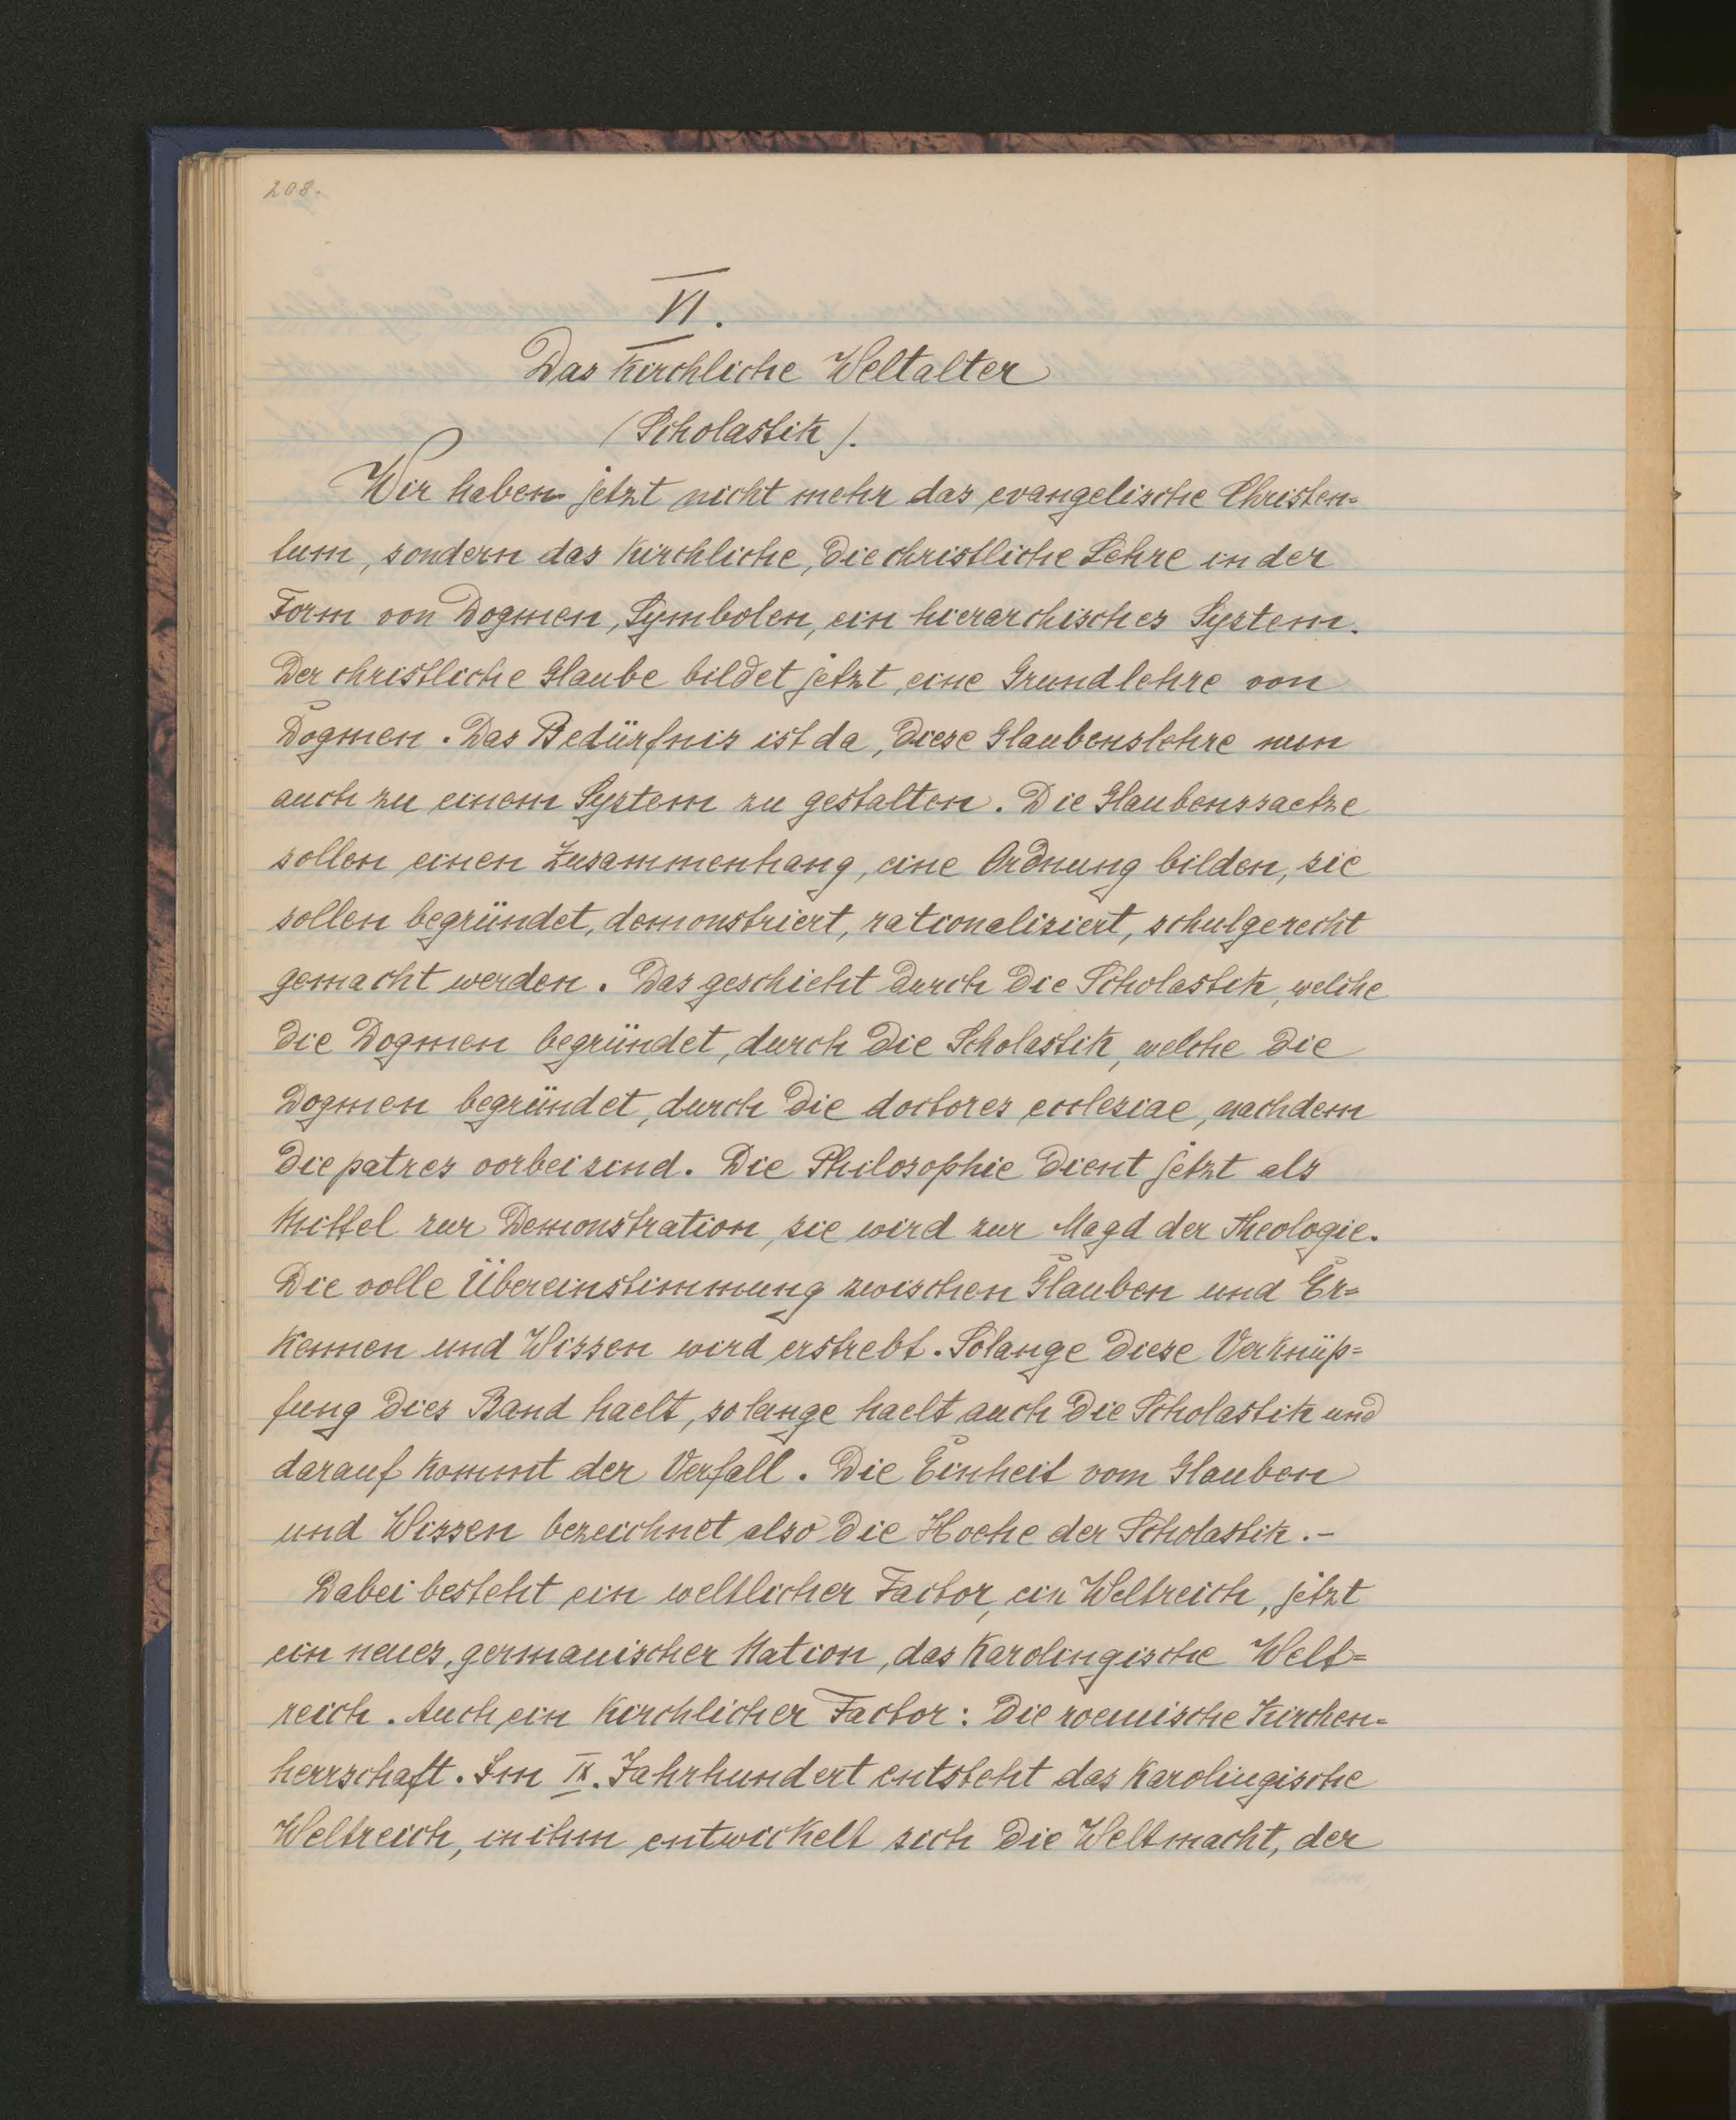 208.
VI.
Das Kirchliche Weltalter
(Scholastik).
Wir haben jetzt nicht mehr das evangelische Christen=
tum, sondern das Kirchliche, die christliche Lehre in der
Form von Dogmen, Symbolen, ein hierarchisches System.
Der christliche Glaube bildet jetzt, eine Grundlehre von
Dogmen. Das Bedürfnis ist da, diese Glaubenslehre nun
auch zu einem System zu gestalten. Die Glaubenssaetze
sollen einen Zusammenhang, eine Ordnung bilden, sie
sollen begründet, demonstriert, rationalisiert, schulgerecht
gemacht werden. Das geschieht durch die Scholastik, welche
die Dogmen begründet, durch die Scholastik, welche die
Dogmen begründet, durch die doctores ecclesiae, nachdem
die patres vorbei sind. Die Philosophie dient jetzt als
Mittel zur Demonstration, sie wird zur Magd der Theologie.
Die volle Übereinstimmung zwischen Glauben und Er=
Kennen und Wissen wird erstrebt. Solange diese Verknüp=
fung dies Band haelt, solange haelt auch die Scholastik und
darauf Kommt der Verfall. Die Einheit vom Glauben
und Wissen bezeichnet also die Hoehe der Scholastik.-
Dabei besteht ein weltlicher Factor, ein Weltreich, jetzt
ein neues, germanischer Nation, das Karolingische Welt=
reich. Auch ein Kirchlicher Factor: die roemische Kirchen=
herrschaft. Im IX. Jahrhundert entsteht das Karolingische
Weltreich, in ihm entwickelt sich die Weltmacht, der